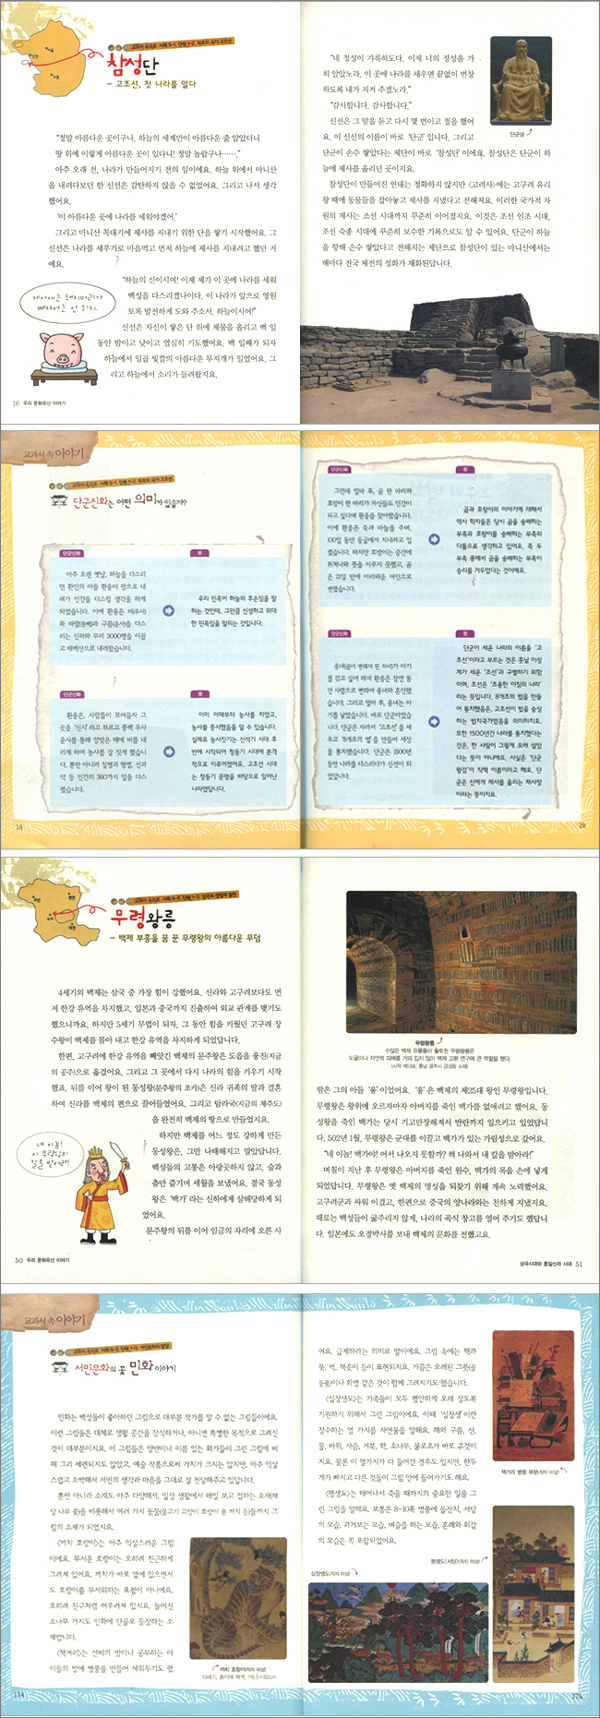 참성단
- 고조선, 첫 나라를 열다
“정말 아름다운 곳이구나. 하늘의 세계만이 아름다운 줄 알았더니
땅 위에 이렇게 아름다운 곳이 있다니! 정말 놀랍구나……”
아주 오래 전, 나라가 만들어지기 전의 일이에요. 하늘 위에서 마니산
을 내려다보던 한 신선은 감탄하지 않을 수 없었어요. 그리고 나서 생각
했어요.
‘이 아름다운 곳에 나라를 세워야겠어.’
그리고 마니산 꼭대기에 제사를 지내기 위한 단을 쌓기 시작했어요. 그
신선은 나라를 세우기로 마음먹고 먼저 하늘에 제사를 지내려고 했던 거
예요.
“하늘의 신이시여! 이제 제가 이 곳에 나라를 세워
백성을 다스리겠나이다. 이 나라가 앞으로 영원
토록 발전하게 도와 주소서. 하늘이시여!”
신선은 자신이 쌓은 단 위에 제물을 올리고 백 일
동안 밤이고 낮이고 열심히 기도했어요. 백 일째가 되자
하늘에서 일곱 빛깔의 아름다운 무지개가 일었어요. 그
리고 하늘에서 소리가 들려왔지요.
16 우리 문화유산 이야기
“네 정성이 갸륵하도다. 이제 너의 정성을 가
히 알았노라. 이 곳에 나라를 세우면 끝없이 번창
하도록 내가 지켜 주겠노라.”
“감사합니다. 감사합니다.”
신선은 그 말을 듣고 다시 몇 번이고 절을 했어
요. 이 신선의 이름이 바로 ‘단군’입니다. 그리고
단군이 손수 쌓았다는 제단이 바로 ‘참성단’이에요. 참성단은 단군이 하
늘에 제사를 올리던 곳이지요.
단군상
참성단이 만들어진 연대는 정확하지 않지만 〈고려사〉에는 고구려 유리
왕 때에 동물들을 잡아놓고 제사를 지냈다고 전해져요. 이러한 국가적 차
원의 제사는 조선 시대까지 꾸준히 이어졌지요. 이것은 조선 인조 시대,
조선 숙종 시대에 꾸준히 보수한 기록으로도 알 수 있어요. 단군이 하늘
을 향해 손수 쌓았다고 전해지는 제단으로 참성단이 있는 마니산에서는
해마다 전국 체전의 성화가 채화된답니다.
교과서 속 이야기
단군신화는 어떤 의미가 있을까?
단군신화
뜻
아주 오랜 옛날, 하늘을 다스리
던 환인의 아들 환웅이 땅으로 내
려가 인간을 다스릴 생각을 하게
되었습니다. 이에 환웅은 비(우사)
와 바람(풍백)과 구름(운사)을 다스
리는 신하와 무리 3000명을 이끌
고 태백산으로 내려왔습니다.
우리 민족이 하늘의 후손임을 말
하는 것인데, 그만큼 신성하고 위대
한 민족임을 말하는 것입니다.
단군신화
뜻
환웅은, 사람들이 모여들자 그
곳을 ‘신시’라고 부르고 풍백 우사
운사를 통해 알맞은 때에 비를 내
리게 하여 농사를 잘 짓게 했습니
다. 뿐만 아니라 질병과 형벌, 선과
악 등 인간의 360가지 일을 다스
렸습니다.
이미 이때부터 농사를 지었고,
농사를 중시했음을 알 수 있습니다.
실제로 농사짓기는 신석기 시대 후
반에 시작되어 청동기 시대에 본격
적으로 이루어졌어요. 고조선 시대
는 청동기 문명을 바탕으로 일어난
나라였답니다.
18
단군신화
뜻
그런데 얼마 후, 곰 한 마리와
호랑이 한 마리가 자신들도 인간이
되고 싶다며 환웅을 찾아왔습니다.
이에 환웅은 쑥과 마늘을 주며,
100일 동안 동굴에서 지내라고 일
렀습니다. 하지만 호랑이는 중간에
뛰쳐나와 뜻을 이루지 못했고, 곰
은 21일 만에 아리따운 여인으로
변했습니다.
곰과 호랑이의 이야기에 대해서
역사 학자들은 당시 곰을 숭배하는
부족과 호랑이를 숭배하는 부족의
다툼으로 생각하고 있어요. 즉 두
부족 중에서 곰을 숭배하는 부족이
승리를 거두었다는 것이에요.
단군신화
뜻
웅녀(곰이 변해서 된 처녀)가 아기
를 갖고 싶어 하자 환웅은 잠깐 동
안 사람으로 변하여 웅녀와 혼인했
습니다. 그리고 얼마 후, 웅녀는 아
기를 낳았습니다. 바로 단군이었습
니다. 단군은 자라서 ‘고조선’을 세
우고 ‘8개조의 법’을 만들어 세상
을 통치했습니다. 단군은 1500년
동안 나라를 다스리다가 신선이 되
었답니다.
단군이 세운 나라의 이름을 ‘고
조선’이라고 부르는 것은 훗날 이성
계가 세운 ‘조선’과 구별하기 위함
이며, 조선은 ‘조용한 아침의 나라’
라는 뜻입니다. 8개조의 법을 만들
어 통치했음은, 고조선이 법을 숭상
하는 법치국가였음을 의미하지요.
또한 1500년간 나라를 통치했다는
것은, 한 사람이 그렇게 오래 살았
다는 뜻이 아니에요. 사실은 ‘단군
왕검’이 직책 이름이라고 해요. 단
군은 신에게 제사를 올리는 제사장
이라는 뜻이지요.
무령왕릉
- 백제 부흥을 꿈 꾼 무령왕의 아름다운 무덤
4세기의 백제는 삼국 중 가장 힘이 강했어요. 신라와 고구려보다도 먼
저 한강 유역을 차지했고, 일본과 중국까지 진출하여 외교 관계를 맺기도
했으니까요. 하지만 5세기 무렵이 되자, 그 동안 힘을 키웠던 고구려 장
수왕이 백제를 몰아 내고 한강 유역을 차지하게 되었답니다.
한편, 고구려에 한강 유역을 빼앗긴 백제의 문주왕은 도읍을 웅진(지금
의 공주)으로 옮겼어요. 그리고 그 곳에서 다시 나라의 힘을 키우기 시작
했죠. 뒤를 이어 왕이 된 동성왕(문주왕의 조카)은 신라 귀족의 딸과 결혼
하여 신라를 백제의 편으로 끌어들였어요. 그리고 탐라국(지금의 제주도)
을 완전히 백제의 땅으로 만들었지요.
하지만 백제를 어느 정도 강하게 만든
동성왕은, 그만 나태해지고 말았답니다.
백성들의 고통은 아랑곳하지 않고, 술과
춤만 즐기며 세월을 보냈어요. 결국 동성
왕은 ‘백가’라는 신하에게 살해당하게 되
었어요.
문주왕의 뒤를 이어 임금의 자리에 오른 사
50 우리 문화유산 이야기
무령왕릉
수많은 백제 유물들이 출토된 무령왕릉은
도굴이나 자연적 피해를 거의 입지 않아 백제 고분 연구에 큰 역할을 했다.
람은 그의 아들 ‘융’이었어요. ‘융’은 백제의 제25대 왕인 무령왕입니다.
무령왕은 왕위에 오르자마자 아버지를 죽인 백가를 없애려고 했어요. 동
성왕을 죽인 백가는 당시 기고만장해져서 반란까지 일으키고 있었답니
다. 502년 1월, 무령왕은 군대를 이끌고 백가가 있는 가림성으로 갔어요.
“네 이놈! 백가야! 어서 나오지 못할까? 썩 나와서 내 칼을 받아라!”
며칠이 지난 후 무령왕은 아버지를 죽인 원수, 백가의 목을 손에 넣게
되었답니다. 무령왕은 옛 백제의 명성을 되찾기 위해 계속 노력했어요.
고구려군과 싸워 이겼고, 한편으로 중국의 양나라와는 친하게 지냈지요.
때로는 백성들이 굶주리지 않게, 나라의 곡식 창고를 열어 주기도 했답니
다. 일본에도 오경박사를 보내 백제의 문화를 전했고요.
삼국시대와 통일신라 시대 51
교과서 속 이야기
서민문화의 꽃 민화 이야기
민화는 백성들이 좋아하던 그림으로 대부분 작가를 알 수 없는 그림들이에요.
이런 그림들은 대체로 생활 공간을 장식하거나, 아니면 특별한 목적으로 그려진
것이 대부분이지요. 이 그림들은 양반이나 이름 있는 화가들이 그린 그림에 비
해 그리 세련되지도 않았고, 예술 작품으로써 가치가 크지는 않지만, 아주 익살
스럽고 소박해서 서민의 생각과 마음을 그대로 잘 전달해주고 있답니다.
뿐만 아니라 소재도 아주 다양해서, 일상 생활에서 매일 보고 접하는 소재(해
달 나무 꽃)을 비롯해서 여러 가지 동물(물고기 고양이 호랑이 용 까치 등)들까지 그
림의 소재가 되었지요.
〈까치 호랑이〉는 아주 익살스러운 그림
이에요. 무서운 호랑이는 오히려 친근하게
그려져 있어요. 까치가 바로 옆에 있으면서
도 호랑이를 무서워하는 표정이 아니에요.
오히려 친구처럼 어우러져 있지요. 늘어진
소나무 가지도 민화에 단골로 등장하는 소
재랍니다.
〈책거리〉는 선비의 방이나 공부하는 아
이들의 방에 병풍을 만들어 세워두기도 했
까치 호랑이(작자 미상)
174
어요. 급제하라는 의미로 말이에요. 그림 속에는 책과
붓, 먹, 책꽂이 등이 표현되지요. 가끔은 오래된 그릇(골
동품)이나 화병 같은 것이 함께 그려지기도 했습니다.
〈십장생도〉는 가족들이 모두 평안하게 오래 살도록
기원하기 위해서 그린 그림이에요. 이때 ‘십장생’이란
장수하는 열 가지를 자연물을 말해요. 해와 구름, 산,
물, 바위, 사슴, 거북, 학, 소나무, 불로초가 바로 그것이
지요. 물론 이 열가지가 다 들어간 경우도 있지만, 한두
개가 빠지고 다른 것들이 그림 안에 들어가기도 해요.
〈평생도〉는 태어나서 죽을 때까지의 중요한 일을 그
린 그림을 말해요. 보통은 8~10폭 병풍에 돌잔치, 서당
의 모습, 과거보는 모습, 벼슬을 하는 모습, 혼례와 회갑
의 모습은 꼭 포함되었어요.
책거리 병풍 부분(작자 미상)
평생도(서당)(작자 미상)
십장생도(작자 미상)
175